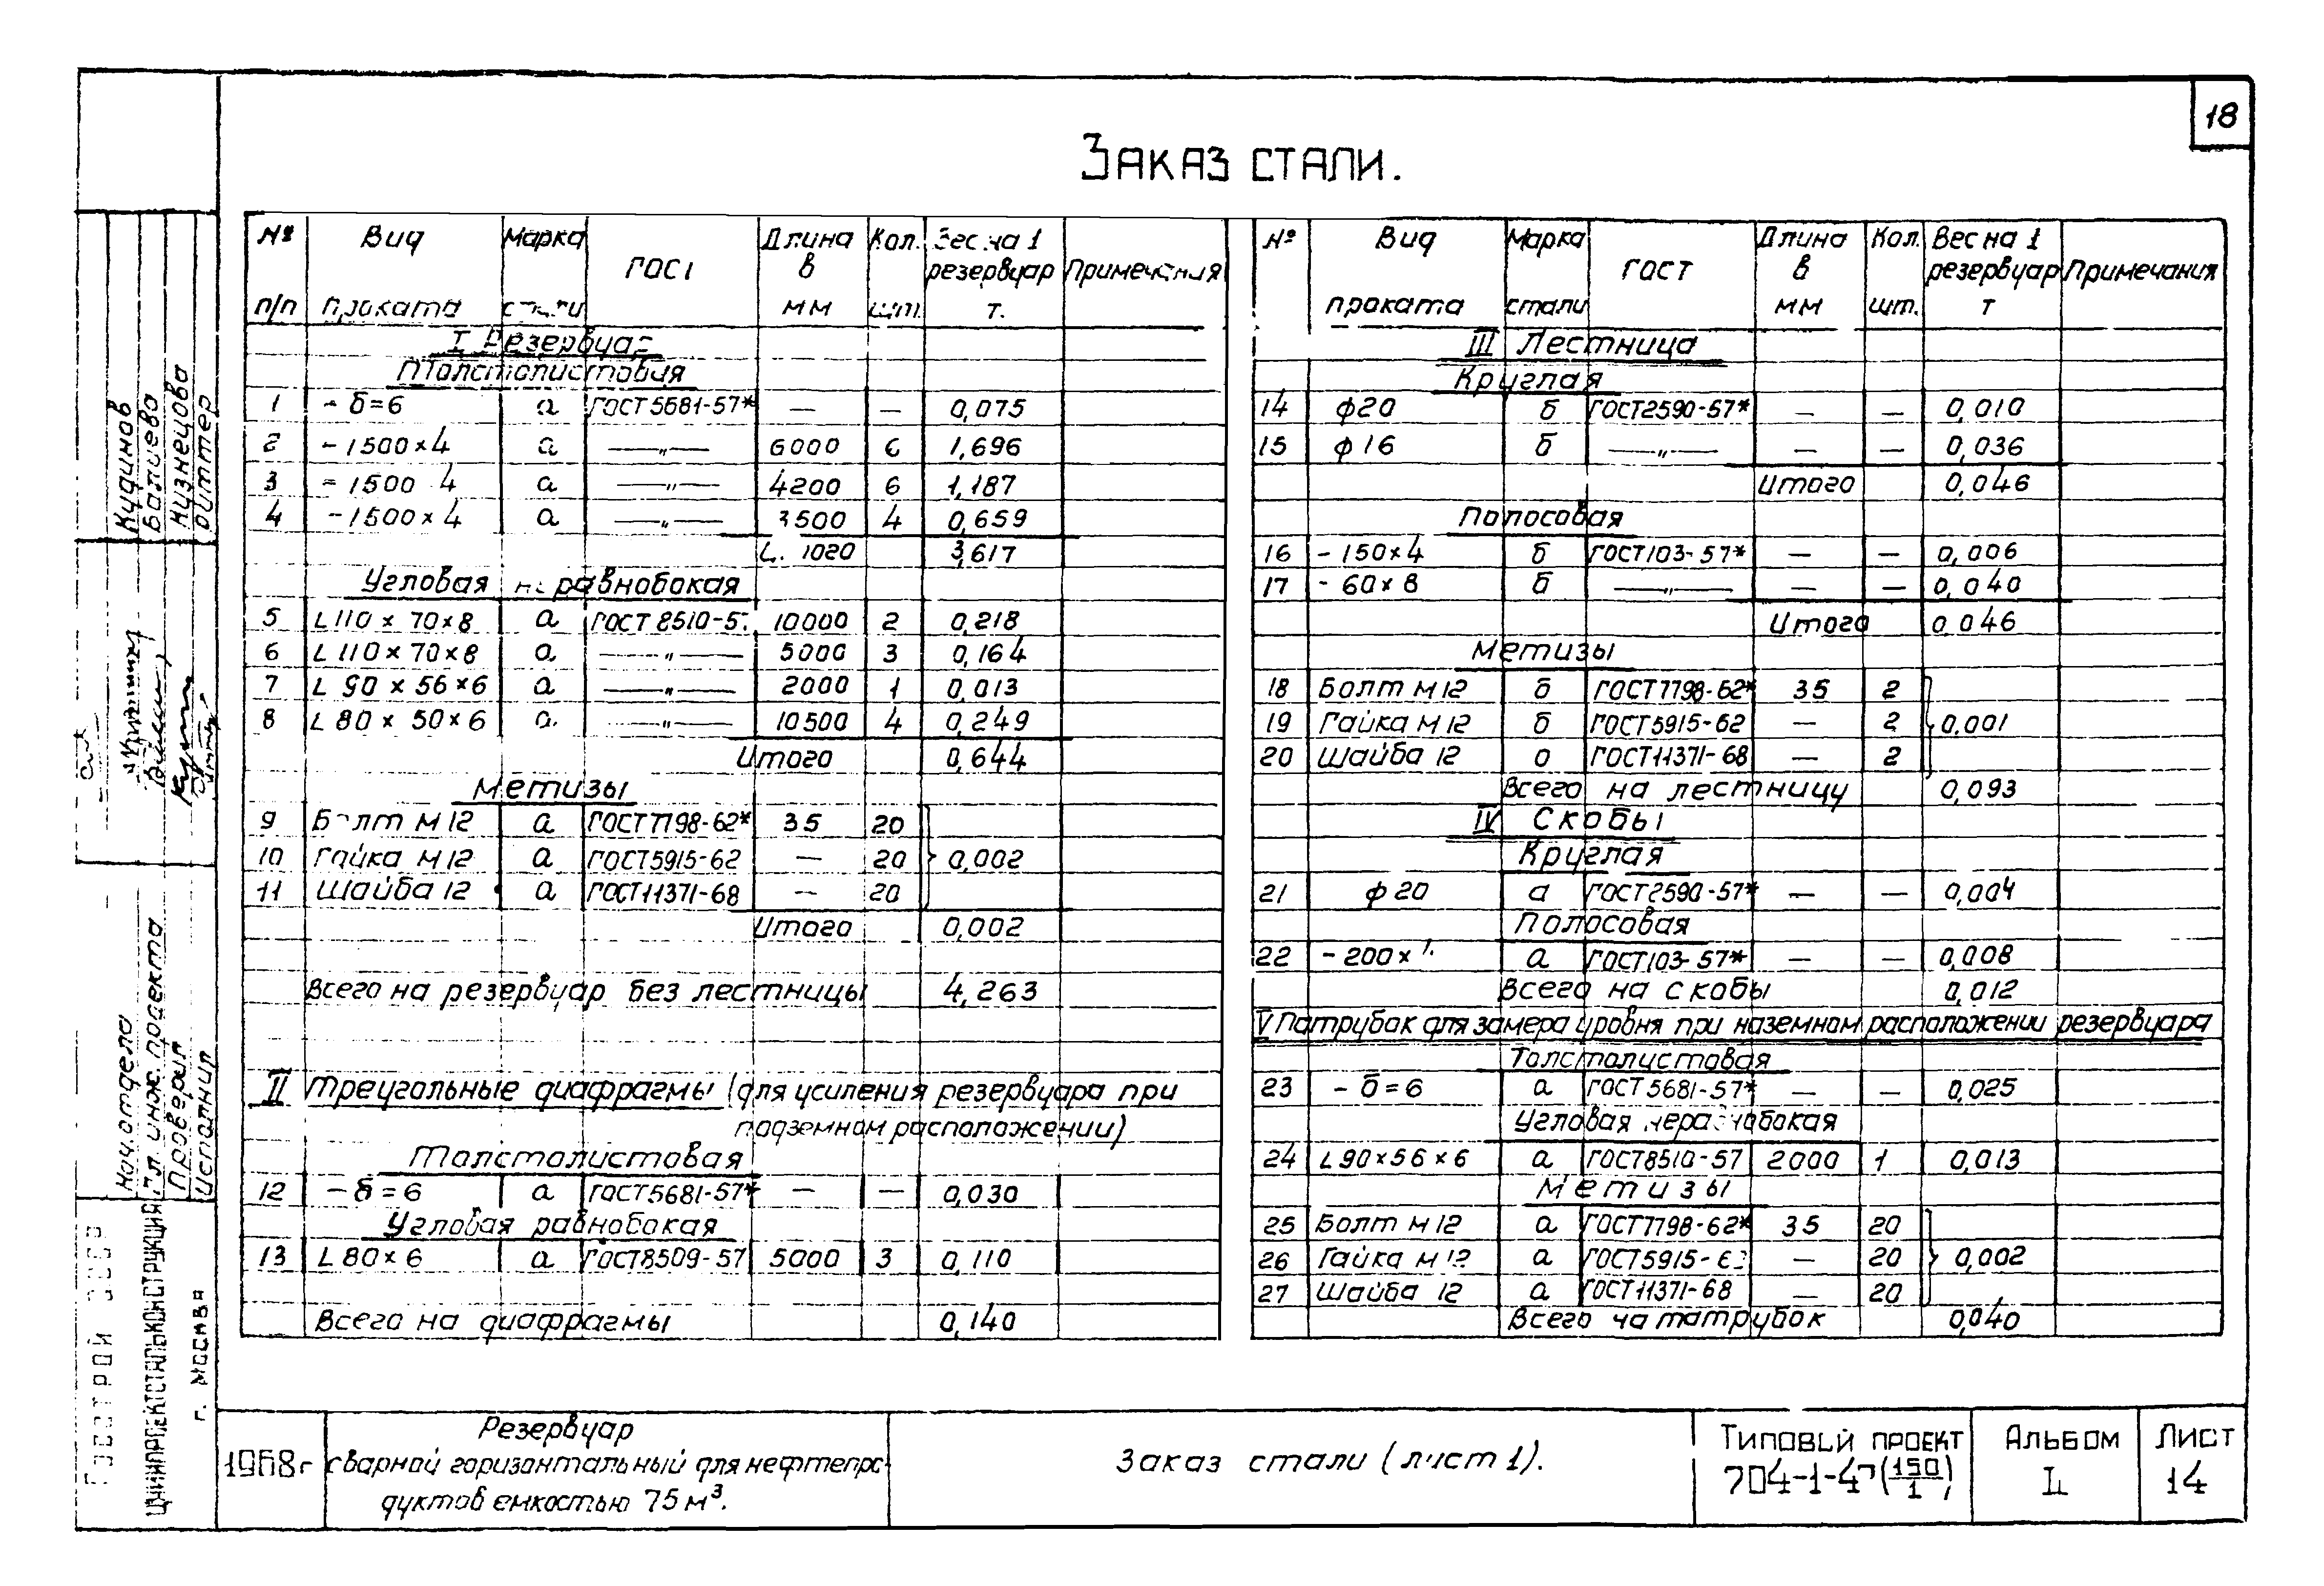 18
Заказ стали.
№ п/п Вид проката Марка стали ГОСТ Длина в мм Кол. шт. Вес на 1 резервуар т. Примечания
I Резервуар
Толстолистовая
1 - δ=6 а ГОСТ5681-57* — — 0,075
2 - 1500×4 а —„— 6000 6 1,696
3 - 1500 4 а —„— 4200 6 1,187
4 - 1500×4 а —„— 3500 4 0,659
3,617
Угловая неравнобокая
5 L110×70×8 а ГОСТ8510-57 10000 2 0,218
6 L110×70×8 а —„— 5000 3 0,164
7 L90×56×6 а —„— 2000 1 0,013
8 L80×50×6 а —„— 10500 4 0,249
Итого 0,644
Метизы
9 Болт М12 а ГОСТ7798-62* 35 20
10 Гайка М12 а ГОСТ5915-62 — 20 0,002
11 Шайба 12 а ГОСТ11371-68 — 20
Итого 0,002
Всего на резервуар без лестницы 4,263
II Треугольные диафрагмы (для усиления резервуара при
подземном расположении)
Толстолистовая
12 - δ=6 а ГОСТ5681-57* — — 0,030
Угловая равнобокая
13 L80×6 а ГОСТ8509-57 5000 3 0,110
Всего на диафрагмы 0,140
№ Вид проката Марка стали ГОСТ Длина в мм Кол. шт. Вес на 1 резервуар т Примечания
III Лестница
Круглая
14 ф20 б ГОСТ2590-57* — — 0,010
15 ф16 б —„— — — 0,036
Итого 0,046
Полосовая
16 - 150×4 б ГОСТ103-57* — — 0,006
17 - 60×8 б —„— — — 0,040
Итого 0,046
Метизы
18 Болт М12 б ГОСТ7798-62* 35 2
19 Гайка М12 б ГОСТ5915-62 — 2 0,001
20 Шайба 12 б ГОСТ11371-68 — 2
Всего на лестницу 0,093
IV Скобы
Круглая
21 ф20 а ГОСТ2590-57* — — 0,004
Полосовая
22 - 200× а ГОСТ103-57* — — 0,008
Всего на скобы 0,012
V Патрубок для замера уровня при наземном расположении резервуара
Толстолистовая
23 - δ=6 а ГОСТ5681-57* — — 0,025
Угловая неравнобокая
24 L90×56×6 а ГОСТ8510-57 2000 1 0,013
Метизы
25 Болт М12 а ГОСТ7798-62* 35 20
26 Гайка М12 а ГОСТ5915-62 — 20 0,002
27 Шайба 12 а ГОСТ11371-68 — 20
Всего на патрубок 0,040
Кудинов
Батиева
Кузнецова
Риттер
Нач. отдела
Гл. инж. проекта
Проверил
Исполнил
Госстрой СССР
ЦНИИПРОЕКТСТАЛЬКОНСТРУКЦИЯ
г. Москва
1968г
Резервуар
сварной горизонтальный для нефтепро-
дуктов емкостью 75м³.
Заказ стали (лист 1).
Типовый проект
704-1-4 (150/1)
Альбом
II
Лист
14